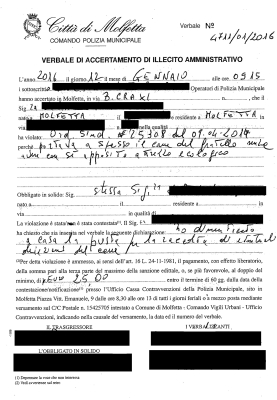 Città di Molfetta
COMANDO POLIZIA MUNICIPALE
Verbale N°
4711/01/2016
VERBALE DI ACCERTAMENTO DI ILLECITO AMMINISTRATIVO
L'anno 2016 il giorno 12 il mese di GENNAIO alle ore 09.15
i sottoscritti Operatori di Polizia Municipale
hanno accertato in Molfetta, in via B. CRAXI che
Sig.
MOLFETTA e residente a MOLFETTA
in via nella qualità
ha violato Ord. Sind. N° 25308 del 09.04.2014
perché portava a spasso il cane del fratello
non con sé apposito attrezzo ecologico
Obbligato in solido: Sig. stesso Sig.
nato a il e residente a
in via in qualità di
La violazione è stata è stata contestata Il Sig.
ha chiesto che sia inserita nel verbale la seguente dichiarazione: ho dimenticato
a casa la busta per la raccolta di eventuali
deiezioni del cane
Per detta violazione è ammesso, ai sensi dell'art. 16 L. 24-11-1981, il pagamento, con effetto liberatorio,
della somma pari alla terza parte del massimo della sanzione edittale, o, se più favorevole, al doppio del
minimo, di EURO 25,00 entro il termine di 60 gg. dalla data della
contestazione/notificazione presso l'Ufficio Cassa Contravvenzioni della Polizia Municipale, sito in
Molfetta Piazza Vitt. Emanuele, 9 dalle ore 8,30 alle ore 13 di tutti i giorni feriali o a mezzo posta mediante
versamento sul C/C Postale n. 15425705 intestato a Comune di Molfetta - Comando Vigili Urbani - Ufficio
Contravvenzioni, indicando nella causale del versamento, la data ed il numero del verbale.
IL TRASGRESSORE I VERBALIZZANTI
L'OBBLIGATO IN SOLIDO
(1) Depennare la voce che non interessa
(2) Vedi avvertenze sul retro